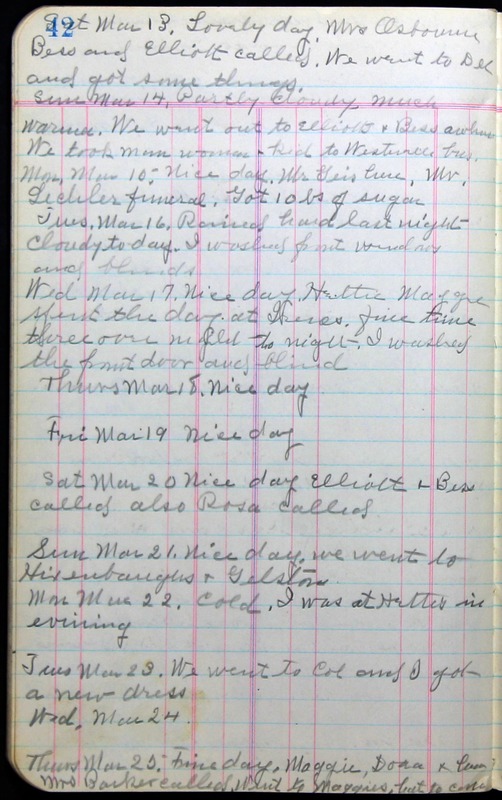 42
Sat Mar 13. Lovely day. Mrs Osbourn
Bess and Elliott called. We went to Del
and got some things.
Sun Mar 14, Partly Cloudy much
warmer. We went out to Elliott & Bess awhile
We took man woman & kid to Westerville bus.
Mon, Mar 15. Nice day. Mr here, Mr.
Lechler funeral. Got 10 lbs of sugar
Tues, Mar 16, Rained hard last night
Cloudy today. I washed front windows
and blinds
Wed Mar 17. Nice day. Hattie Maggie
spent the day at Irenes. fine time
three over night to night. I washed
the front door and blind
Thurs Mar 18. Nice day
Fri Mar 19 Nice day
Sat Mar 20 Nice day Elliott & Bess
called also Rosa called
Sun Mar 21. Nice day. we went to
Hixenbaughs & Gelstons
Mon Mar 22. Cold. I was at Hatties in
evining
Tues Mar 23. We went to Col and I got
a new dress
Wed, Mar 24.
Thurs Mar 25. Fine day. Maggie, Dora &
Mrs Barker called. Went to Maggies, but to